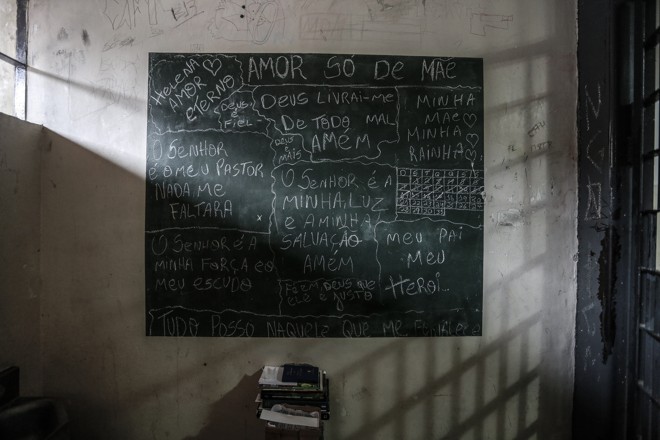 HELENA
AMOR
ETERNO
AMOR SÓ DE MÃE
DEUS É
FIEL
DEUS LIVRAI-ME
DE TODO MAL
AMÉM
DEUS É
MAIS
MINHA
MÃE
MINHA
RAINHA
O SENHOR
É O MEU PASTOR
NADA ME
FALTARA
O SENHOR É A
MINHA LUZ
E A MINHA
SALVAÇÃO
AMÉM
MEU PAI
MEU
HEROI...
O SENHOR É A
MINHA FORÇA E O
MEU ESCUDO
FÉ EM DEUS QUE
ELE É JUSTO
TUDO POSSO NAQUELE QUE ME